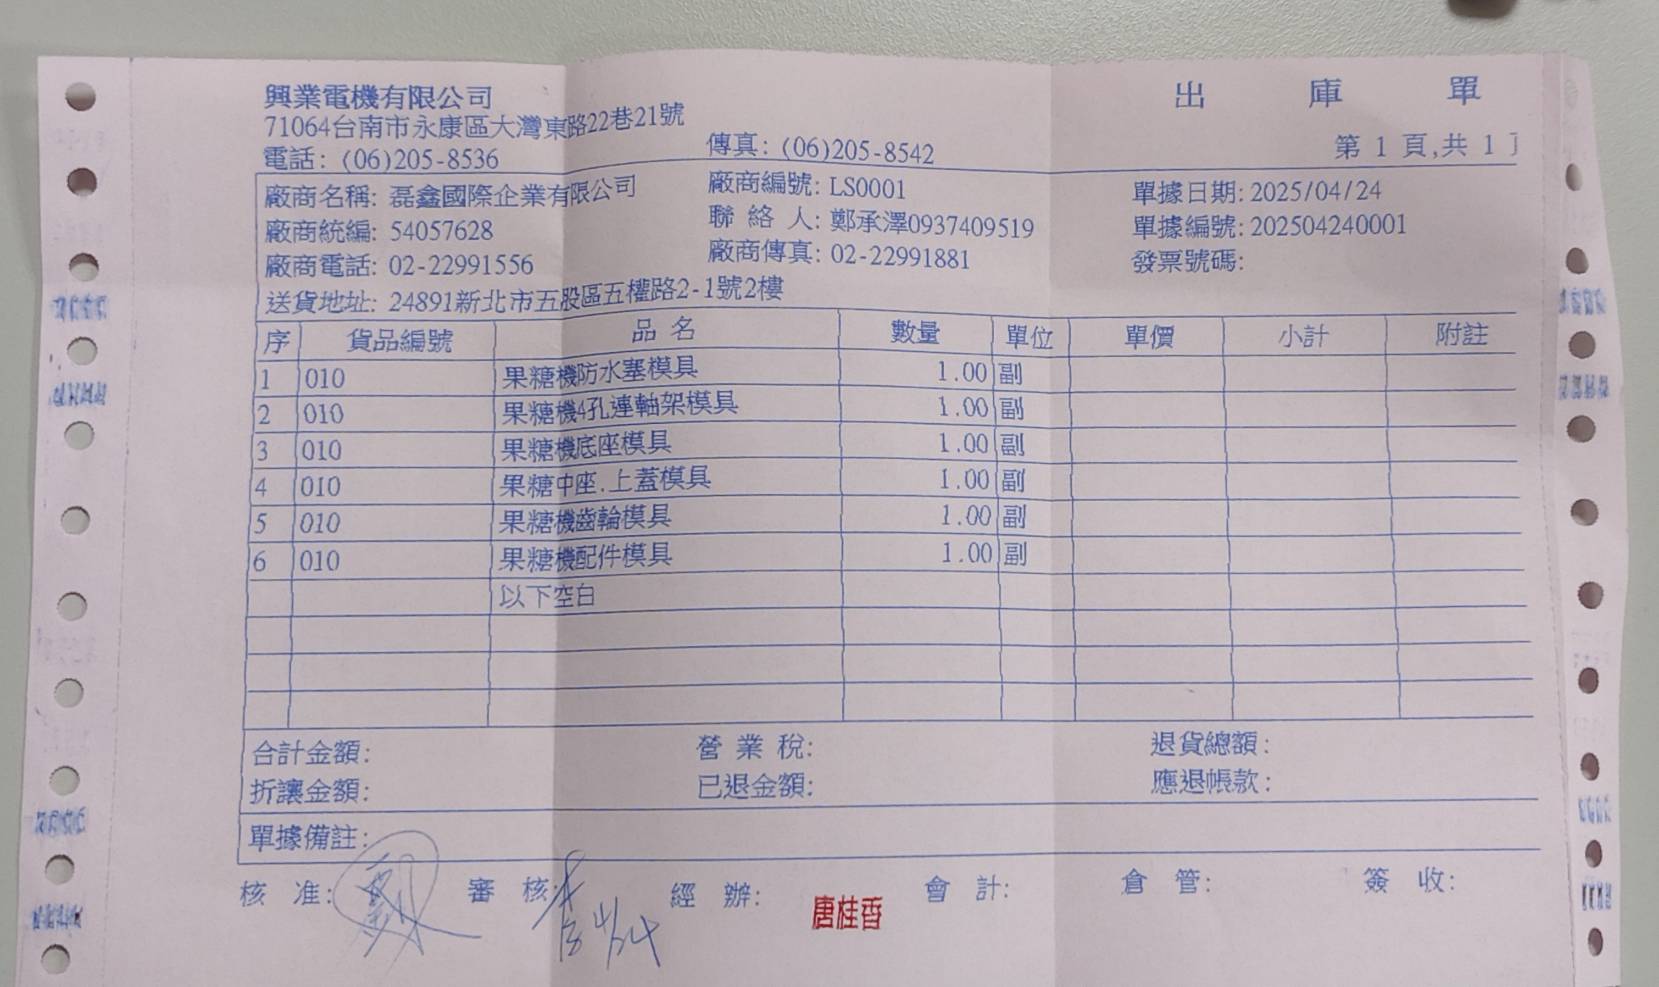 興業電機有限公司
出 庫 單
71064台南市永康區大灣東路22巷21號
電話: (06)205-8536 傳真: (06)205-8542 第 1 頁,共 1
廠商名稱: 磊鑫國際企業有限公司 廠商編號: LS0001 單據日期: 2025/04/24
廠商統編: 54057628 聯 絡 人: 鄭承澤0937409519 單據編號: 202504240001
廠商電話: 02-22991556 廠商傳真: 02-22991881 發票號碼:
送貨地址: 24891新北市五股區五權路2-1號2樓
序 貨品編號 品 名 數量 單位 單價 小計 附註
1 010 果糖機防水塞模具 1.00 副
2 010 果糖機4孔連軸架模具 1.00 副
3 010 果糖機底座模具 1.00 副
4 010 果糖中座.上蓋模具 1.00 副
5 010 果糖機齒輪模具 1.00 副
6 010 果糖機配件模具 1.00 副
以下空白
合計金額: 營 業 稅: 退貨總額:
折讓金額: 已退金額: 應退帳款:
單據備註:
核 准: 審 核: 經 辦: 唐桂香 會 計: 倉 管: 簽 收:
4/24